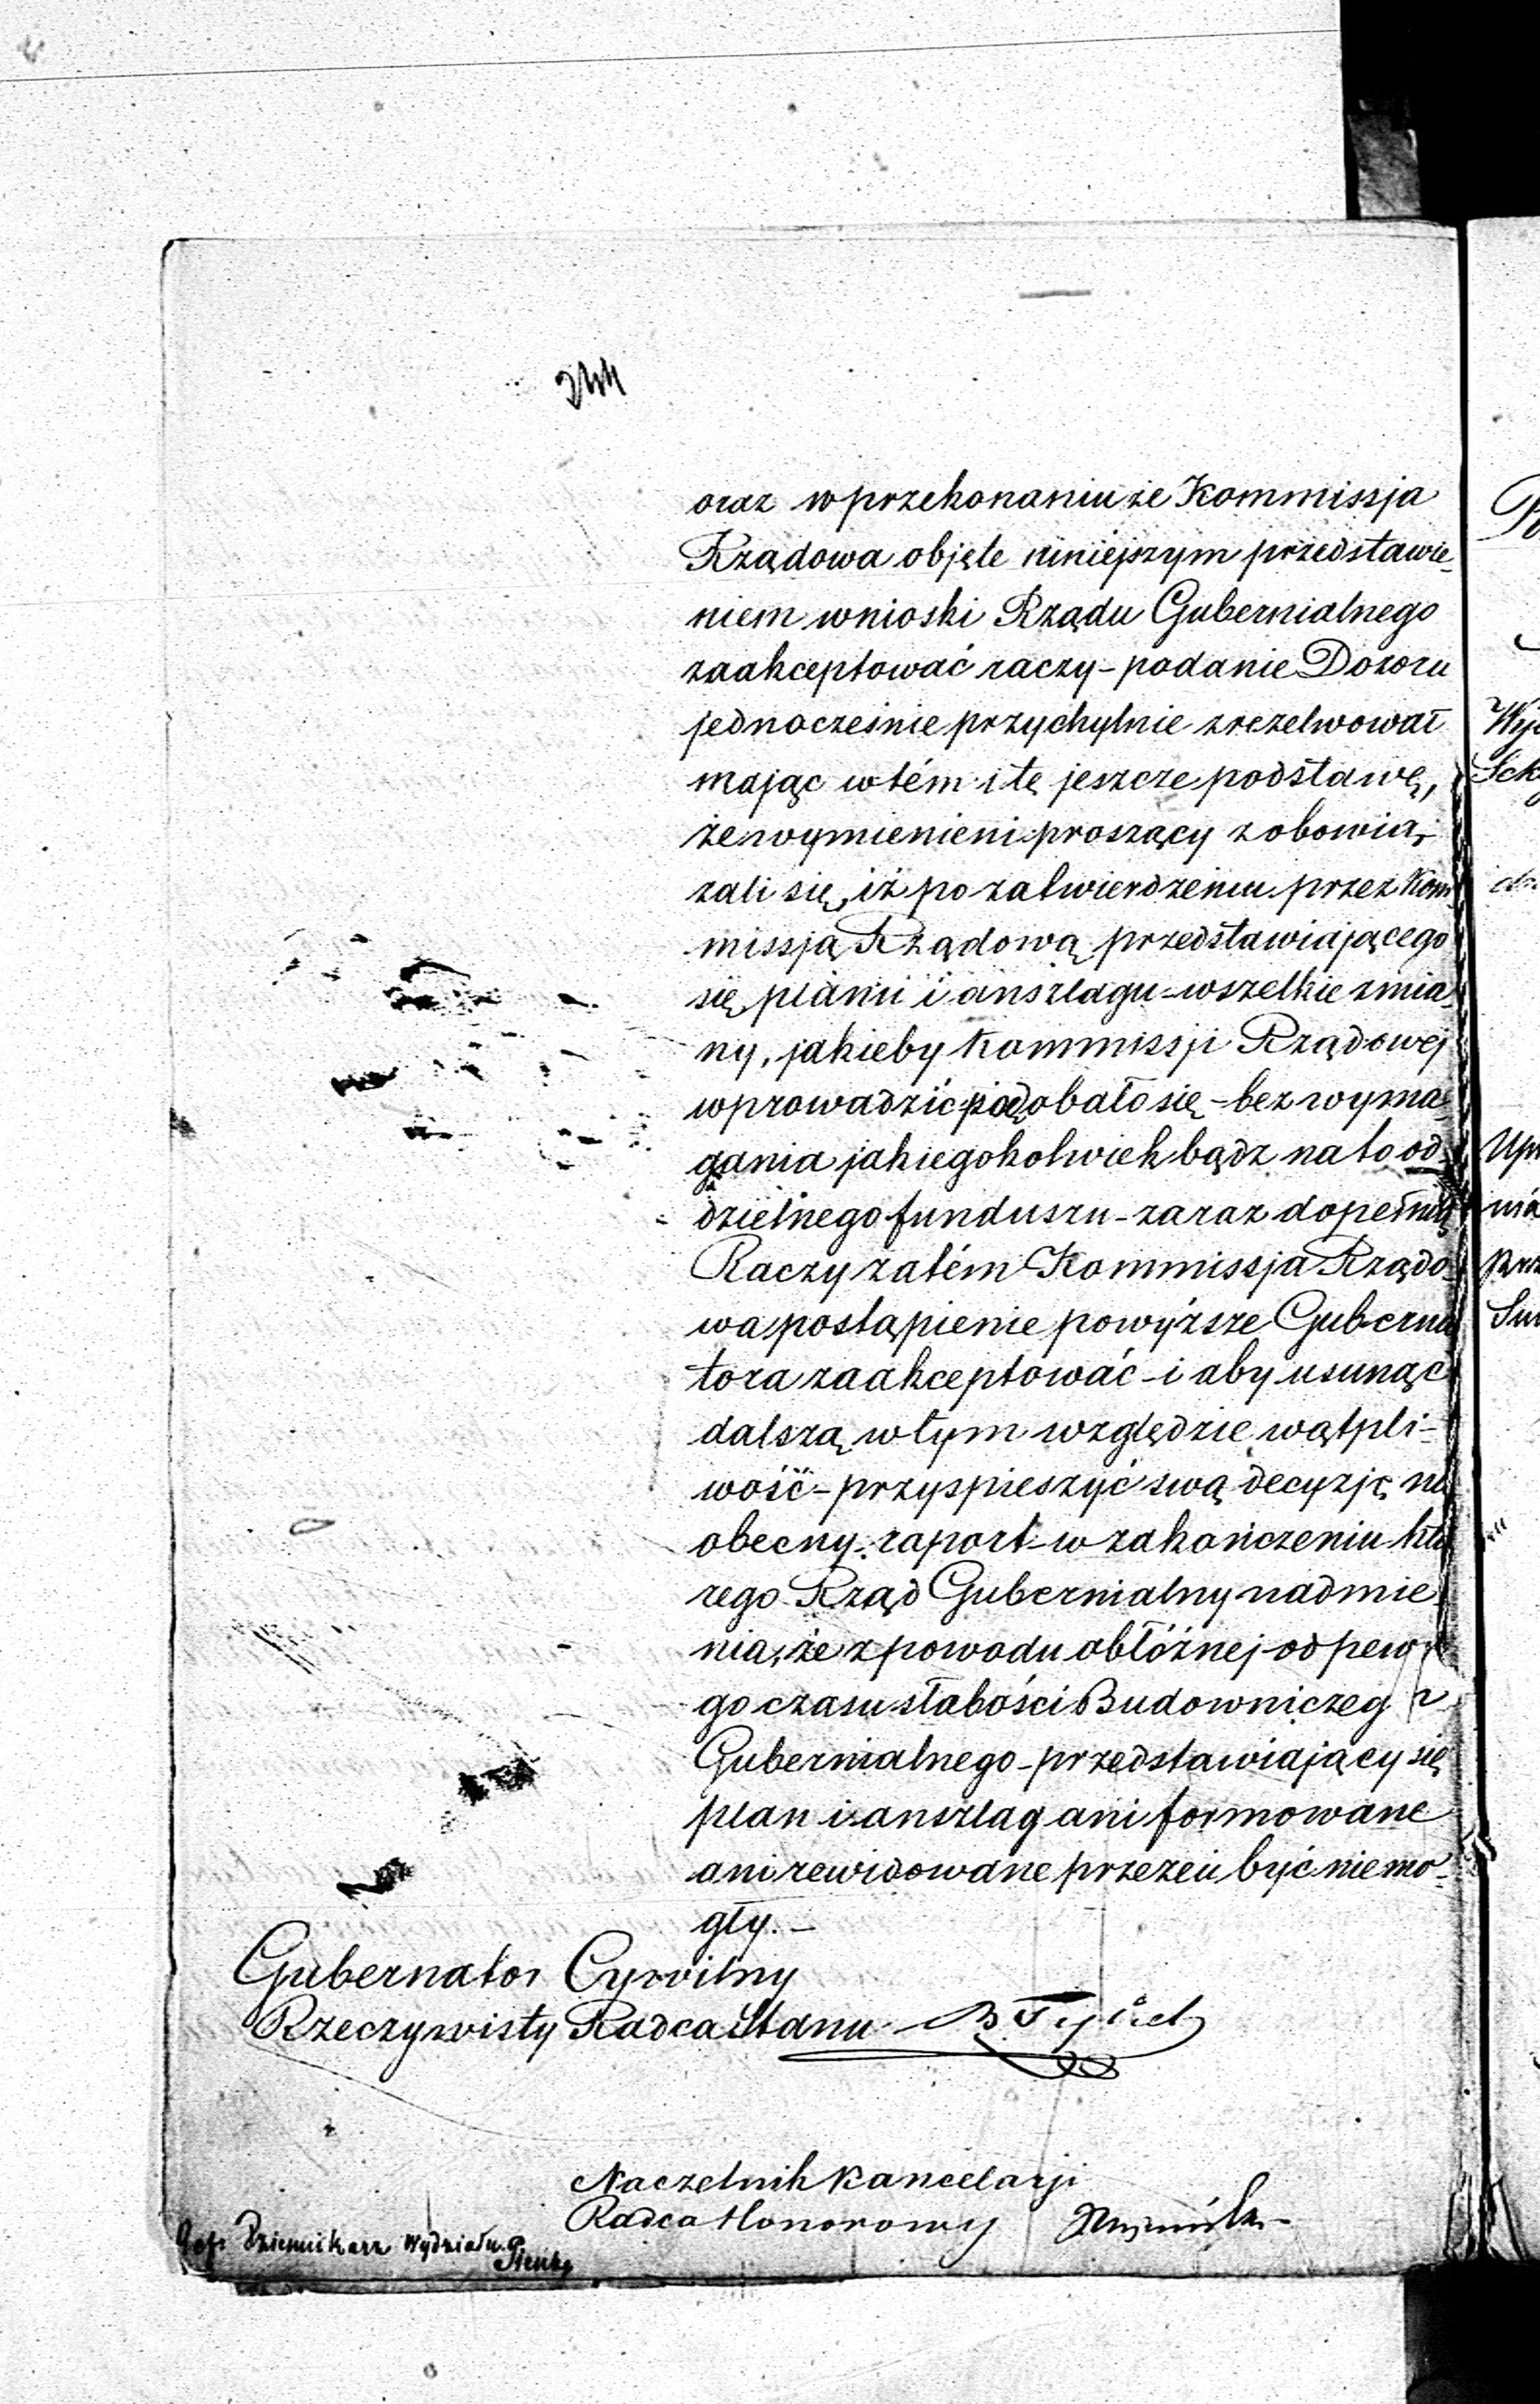 244
oraz w przekonaniu że Kommissja
Rządowa objęte niniejszym przedstawie-
niem wnioski Rządu Gubernialnego
zaakceptować raczy – podanie Dozoru
jednocześnie przychylnie zrezolwował
mając w tém i tę jeszcze podstawę,
że wymienieni proszący zobowią-
zali się, iż po zatwierdzeniu przez Kom-
missją Rządową przedstawiającego
się planu i anszlagu – wszelkie zmia-
ny, jakieby Kommissji Rządowej
wprowadzić podobało się – bez wyma-
gania jakiegokolwiek bądz na to od-
dzielnego funduszu – zaraz dopełnią
Raczy zatém Kommissja Rządo-
wa postąpienie powyższe Guberna
tora zaakceptować – i aby usunąć
dalszą w tym względzie wątpli-
wość – przyspieszyć swą decyzję na
obecny raport – w zakończeniu któ
rego Rząd Gubernialny nadmie-
nia, że z powodu obłóżnej od pewne
go czasu słabości Budowniczego
Gubernialnego – przedstawiający się
plan i anszlag ani formowane
ani rewidowane przezeń być nie mo-
gły. –
Gubernator Cywilny
Rzeczywisty Radca Stanu
Naczelnik Kancelarji
Radca Honorowy
Dziennikarz Wydziału